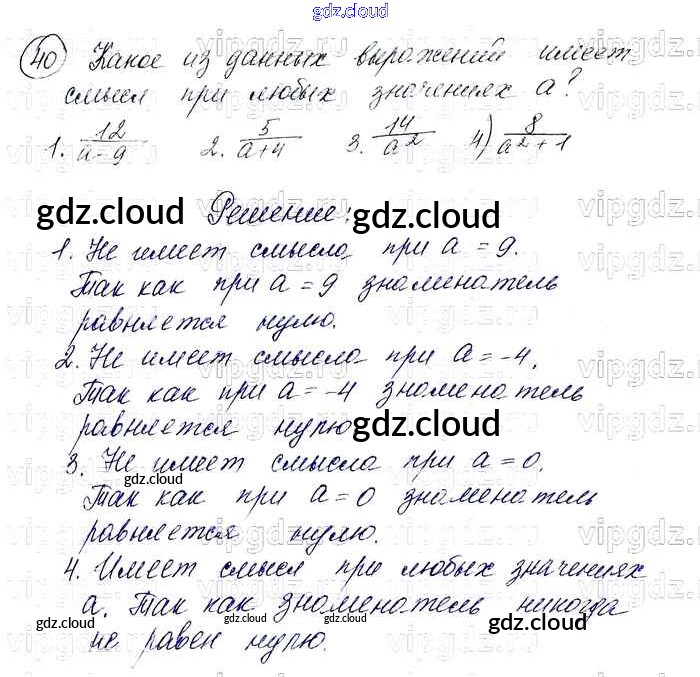 gdz.cloud
40 Какое из данных выражений имеет
смысл при любых значениях a?
1. 12/(a-9) 2. 5/(a+4) 3. 14/a² 4) 8/(a²+1)
Решение:
gdz.cloud gdz.cloud
1. Не имеет смысла при a = 9.
Так как при a = 9 знаменатель
равняется нулю.
2. Не имеет смысла при a = -4.
Так как при a = -4 знаменатель
равняется нулю
gdz.cloud
3. Не имеет смысла при a = 0.
gdz.cloud gdz.cloud
Так как при a = 0 знаменатель
равняется нулю.
4. Имеет смысл при любых значениях
a. Так как знаменатель никогда
gdz.cloud gdz.cloud gdz.cloud
не равен нулю.